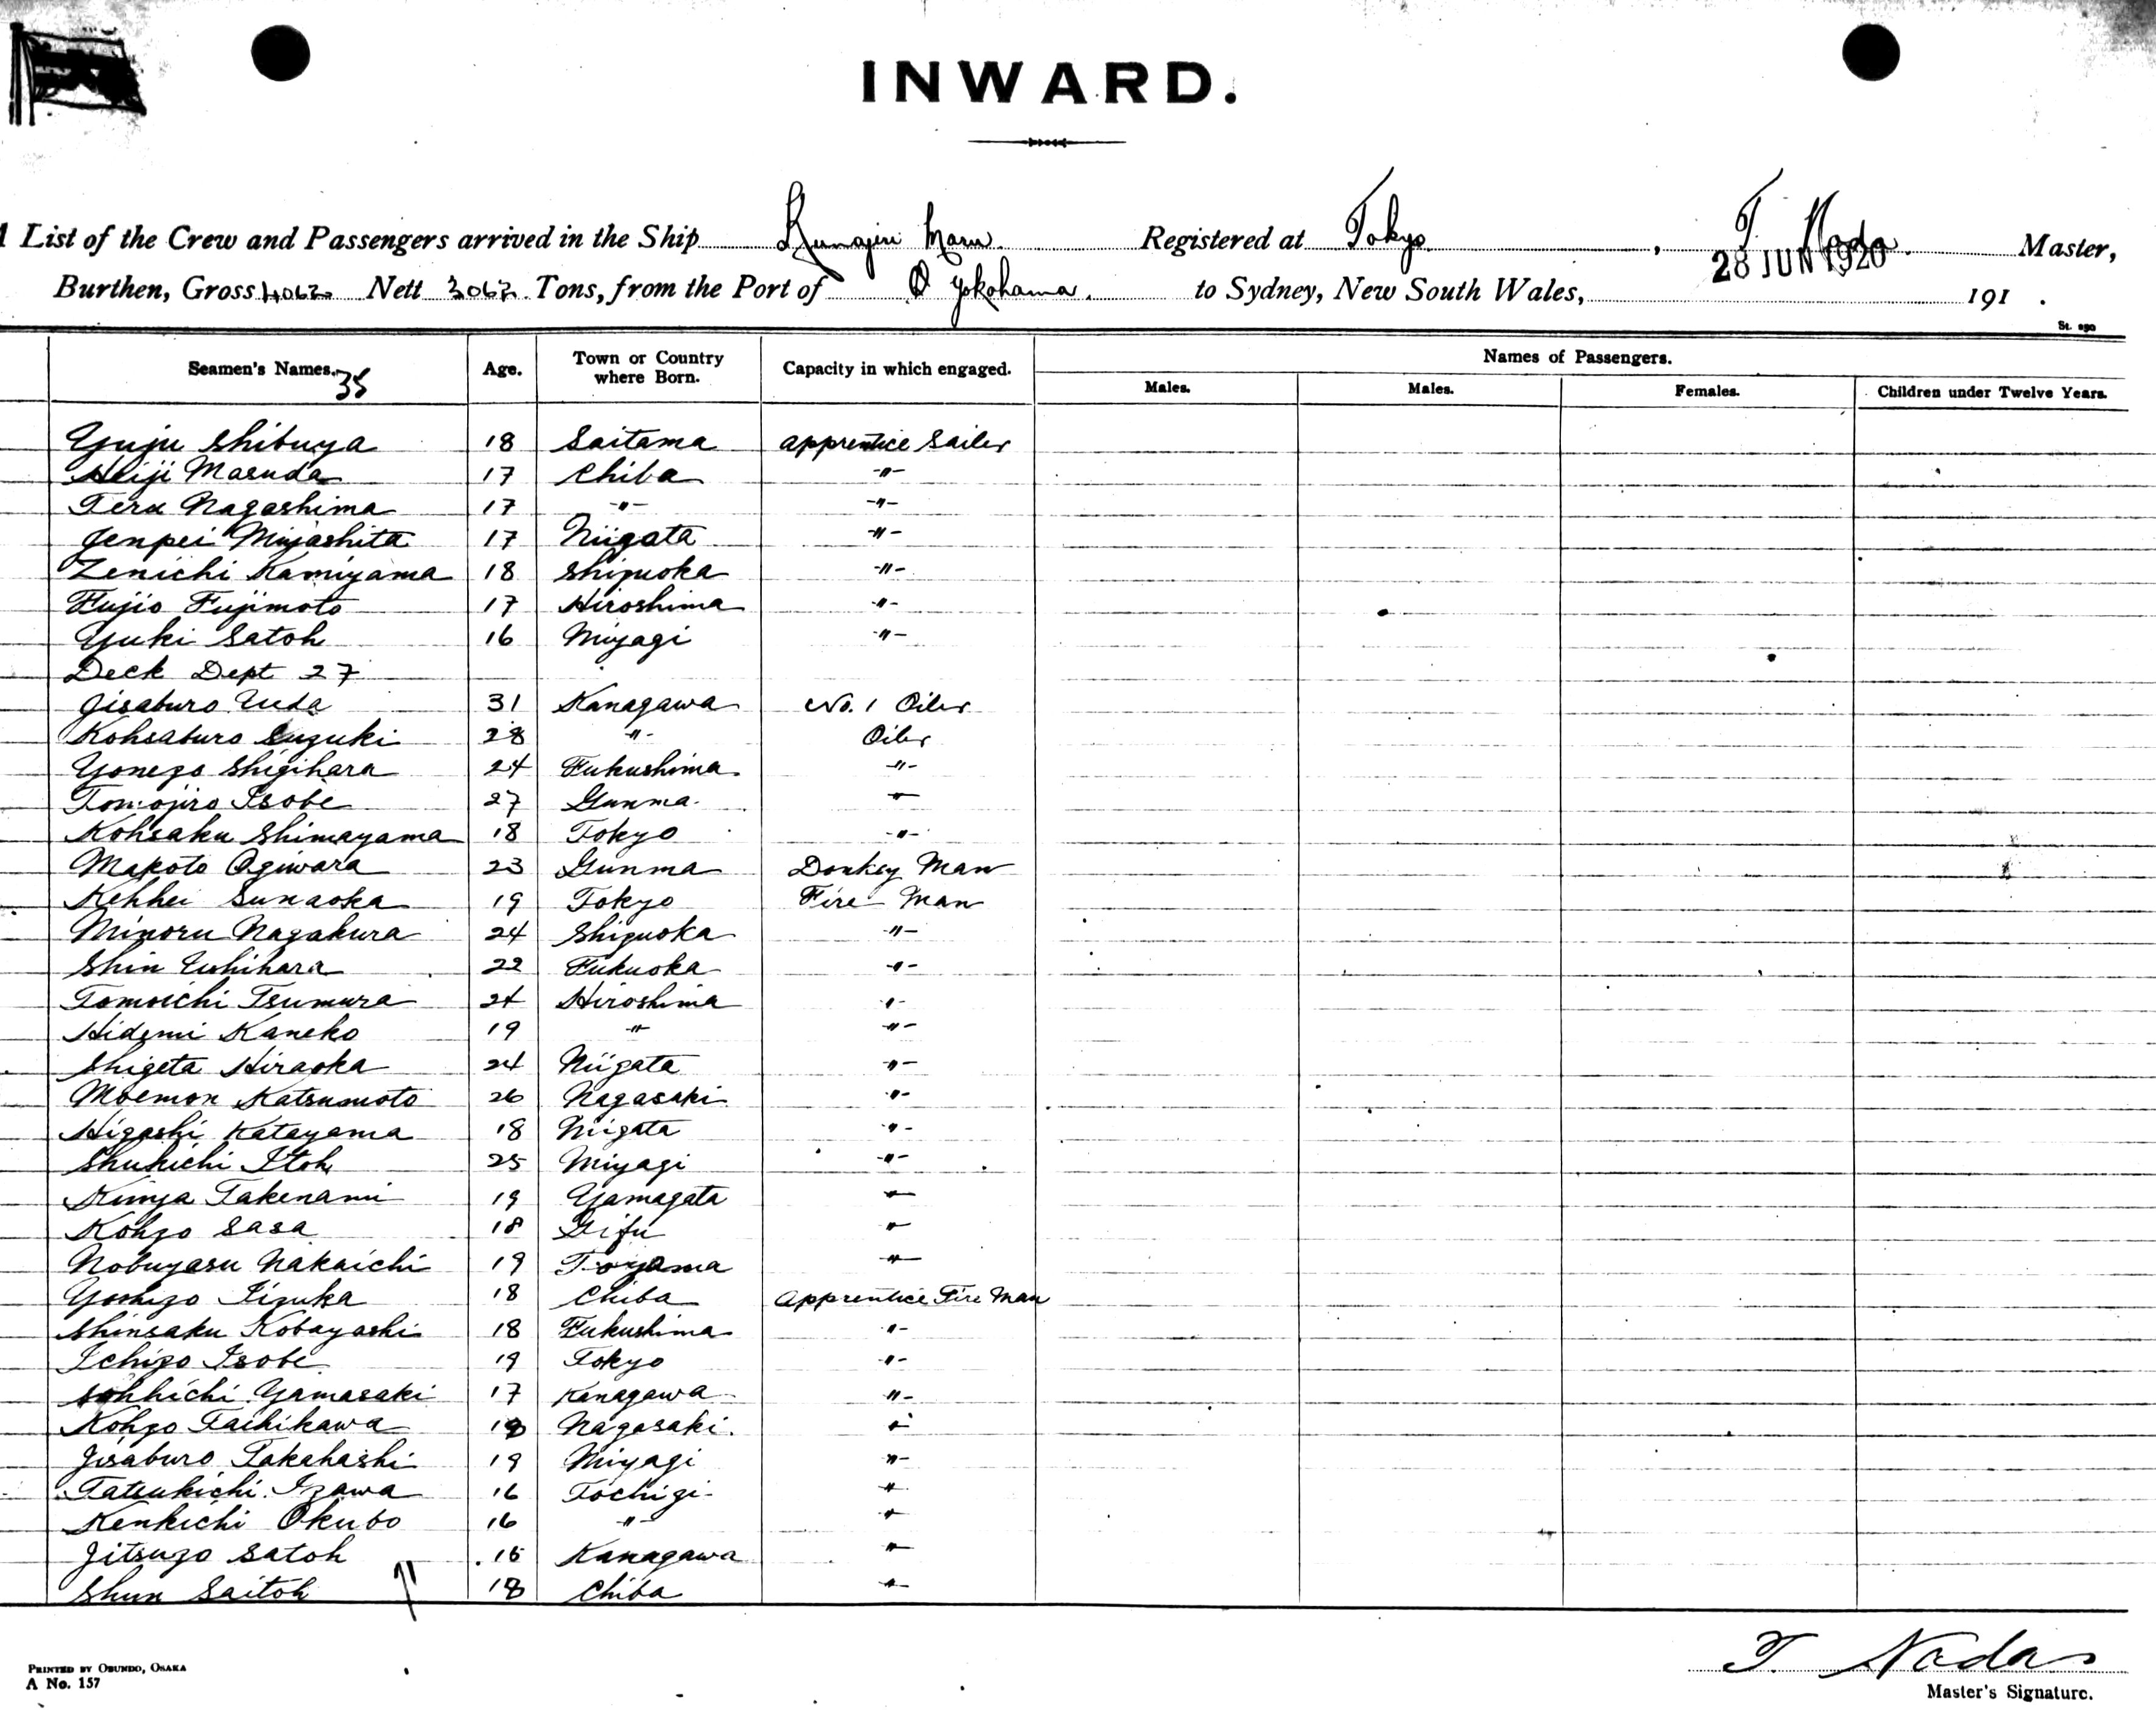 INWARD.
List of the Crew and Passengers arrived in the Ship Maru Registered at Tokyo, T. Noda Master,
28 JUN 1920
Burthen, Gross 4062 Nett 3062 Tons, from the Port of Yokohama. to Sydney, New South Wales, 191 .
Seamen's Names. 35 Age. Town or Country where Born. Capacity in which engaged. Names of Passengers.
Males. Males. Females. Children under Twelve Years.
Yuju Shibuya 18 Saitama apprentice Sailer
Heiji Masuda 17 Chiba -"-
Teru Nagashima 17 -"- -"-
Jenpei Miyashita 17 Niigata -"-
Zenichi Kamiyama 18 Shizuoka -"-
Fujio Fujimoto 17 Hiroshima -"-
Yuki Satoh 16 Miyagi -"-
Deck Dept 27
Jisaburo Ueda 31 Kanagawa No. 1 Oiler
Kohsaburo Suzuki 28 -"- Oiler
Yonezo Shigihara 24 Fukushima -"-
Tomojiro Isobe 27 Gunma -"-
Kohsaku Shimayama 18 Tokyo -"-
Makoto Ogiwara 23 Gunma Donkey Man
Kehhei Sunaoka 19 Tokyo Fire Man
Minoru Nagakura 24 Shizuoka -"-
Shin Ushihara 22 Fukuoka -"-
Tomoichi Tsumura 24 Hiroshima -"-
Hidemi Kaneko 19 -"- -"-
Shigeta Hiraoka 24 Niigata -"-
Moemon Katsumoto 26 Nagasaki -"-
Higashi Katayama 18 Niigata -"-
Shukichi Itoh 25 Miyagi -"-
Kinya Takenami 19 Yamagata -"-
Kohzo Sasa 18 Gifu -"-
Nobuyasu Nakaichi 19 Toyama -"-
Yoshizo Iizuka 18 Chiba apprentice Fire Man
Shinsaku Kobayashi 18 Fukushima -"-
Ichizo Isobe 19 Tokyo -"-
Sohhichi Yamasaki 17 Kanagawa -"-
Kohzo Tachikawa Nagasaki. -"-
Jisaburo Takahashi 19 Miyagi -"-
Tatsukichi Izawa 16 Tochigi -"-
Kenkichi Okubo 16 -"- -"-
Jitsuzo Satoh Kanagawa -"-
Shun Saitoh 18 Chiba -"-
T. Noda
Master's Signature.
PRINTED BY OBUNDO, OSAKA
A No. 157